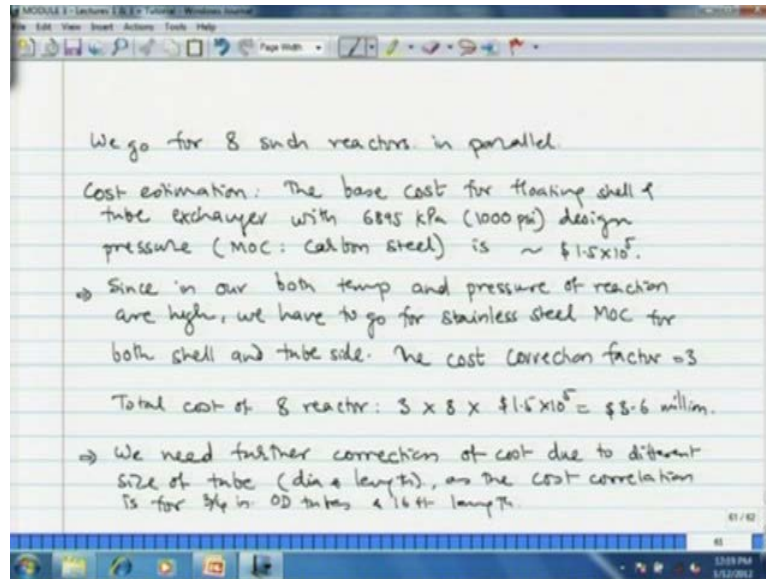 MODULE 3 - Lectures 1 & 3 + Tutorial - Windows Journal
File Edit View Insert Actions Tools Help
Page Width
We go for 8 such reactors in parallel.
Cost estimation: The base cost for floating shell &
tube exchanger with 6895 kPa (1000 psi) design
pressure (MOC: Carbon steel) is ~ $1.5x10⁵.
⇒ Since in our both temp and pressure of reaction
are high, we have to go for stainless steel MOC for
both shell and tube side. The cost correction factor = 3
Total cost of 8 reactor: 3 x 8 x $1.5x10⁵ = $3.6 million.
⇒ We need further correction of cost due to different
size of tube (dia & length), as the cost correlation
is for 3/4 in. OD tubes & 16 ft length.
61 / 62
61
12:03 PM
5/12/2012